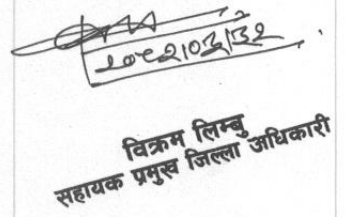 २०८२।०३।३२
विक्रम लिम्बु
सहायक प्रमुख जिल्ला अधिकारी